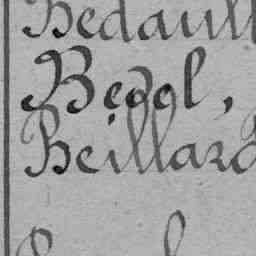 Bedaull
Bedol,
Beillard